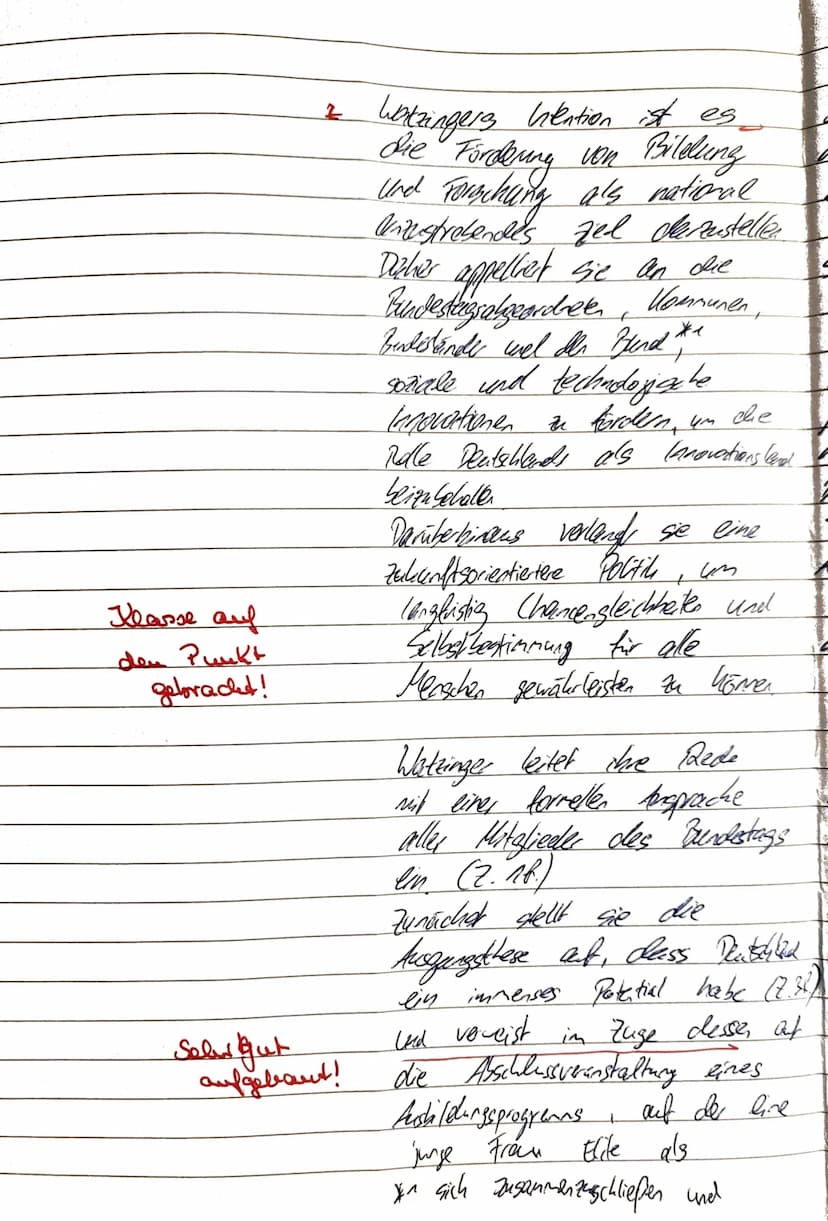 2 Watzingers Intention ist es
die Förderung von Bildung
und Forschung als national
anzustrebendes Ziel darzustellen
Daher appelliert sie an die
Bundestagsabgeordneten, Kommunen,
Bundesländer und den Bund **1,
soziale und technologische
Innovationen zu fördern, um die
Rolle Deutschlands als Innovationsland
beizubehalten
Darüberhinaus verlangt sie eine
zukunftsorientiertere Politik, um
langfristig Chancengleichheiten und
Selbstbestimmung für alle
Menschen gewährleisten zu können
Klasse auf
den Punkt
gebracht!
Watzinger leitet ihre Rede
mit einer formellen Ansprache
aller Mitglieder des Bundestags
ein (Z. 1f.)
Zunächst stellt sie die
Ausgangsthese auf, dass Deutschland
ein immenses Potential habe (Z. 3f.)
und verweist im Zuge dessen auf
die Abschlussveranstaltung eines
Ausbildungsprogramms, auf der eine
junge Frau Elite als
Sehr gut
aufgebaut!
*1 sich zusammenzuschließen und